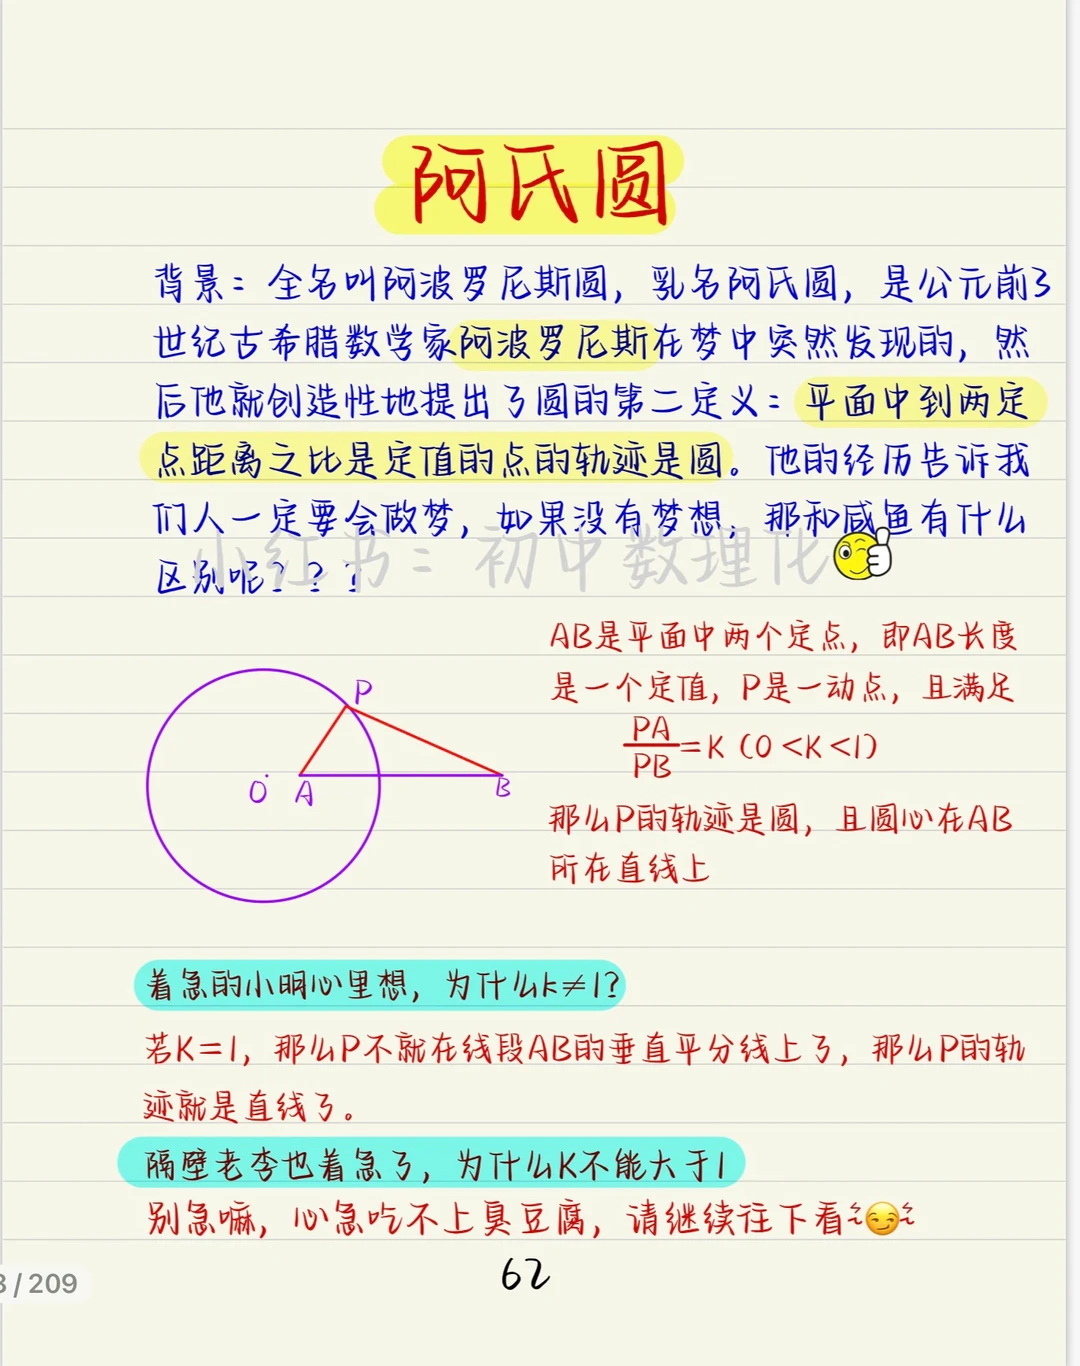 阿氏圆
背景：全名叫阿波罗尼斯圆，乳名阿氏圆，是公元前3
世纪古希腊数学家阿波罗尼斯在梦中突然发现的，然
后他就创造性地提出了圆的第二定义：平面中到两定
点距离之比是定值的点的轨迹是圆。他的经历告诉我
们人一定要会做梦，如果没有梦想，那和咸鱼有什么
区别呢？？？
小红书：初中数理化
AB是平面中两个定点，即AB长度
是一个定值，P是一动点，且满足
PA/PB=K（0<K<1）
那么P的轨迹是圆，且圆心在AB
所在直线上
P
O A B
着急的小明心里想，为什么k≠1？
若K=1，那么P不就在线段AB的垂直平分线上了，那么P的轨
迹就是直线了。
隔壁老李也着急了，为什么K不能大于1
别急嘛，心急吃不上臭豆腐，请继续往下看~~
62
3/209